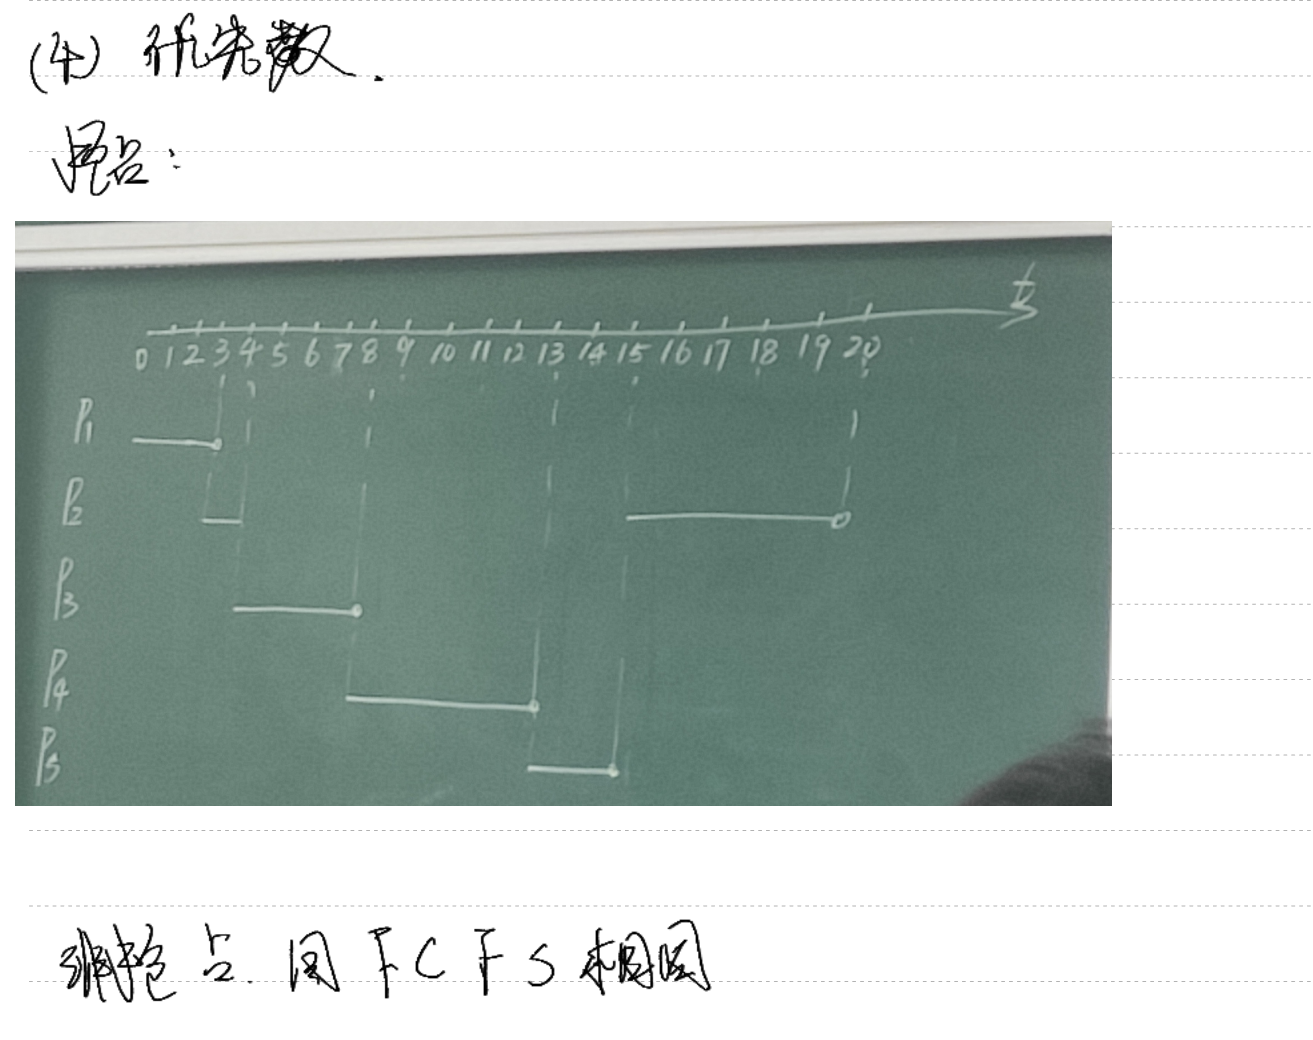 (4) 优先数.
抢占:
t
0 1 2 3 4 5 6 7 8 9 10 11 12 13 14 15 16 17 18 19 20
P1
P2
P3
P4
P5
非抢占. 同FCFS相同